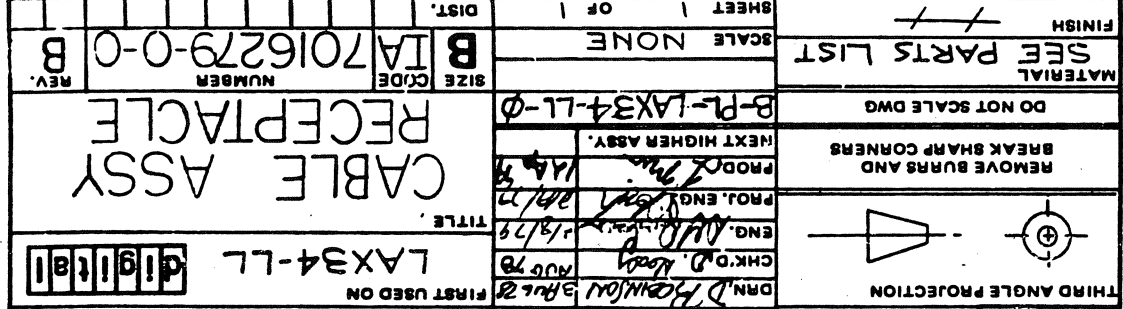 THIRD ANGLE PROJECTION
REMOVE BURRS AND
BREAK SHARP CORNERS
DO NOT SCALE DWG
MATERIAL
SEE PARTS LIST
FINISH
DRN. D. ROBINSON 3 AUG 78
CHK'D. D. AUG 78
ENG. 2/8/79
PROJ. ENG
PROD.
NEXT HIGHER ASSY.
B-PL-LAX34-LL-Ø
SCALE NONE
SHEET 1 OF 1
FIRST USED ON
LAX34-LL
digital
TITLE
CABLE ASSY
RECEPTACLE
SIZE CODE NUMBER REV.
B IA 7016279-0-0 B
DIST.